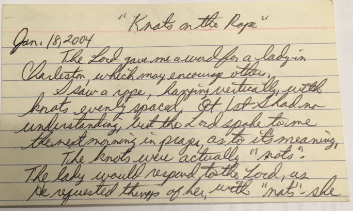 "Knots on the Rope"
Jan. 18, 2004
The Lord gave me a word for a lady in
Charleston, which may encourage others.
I saw a rope, hanging vertically, with
knots evenly spaced. At 1st I had no
understanding, but the Lord spoke to me
the next morning in prayer, as to its meaning.
The knots were actually "nots".
The lady would respond to the Lord, as
He requested things of her, with "nots" - she